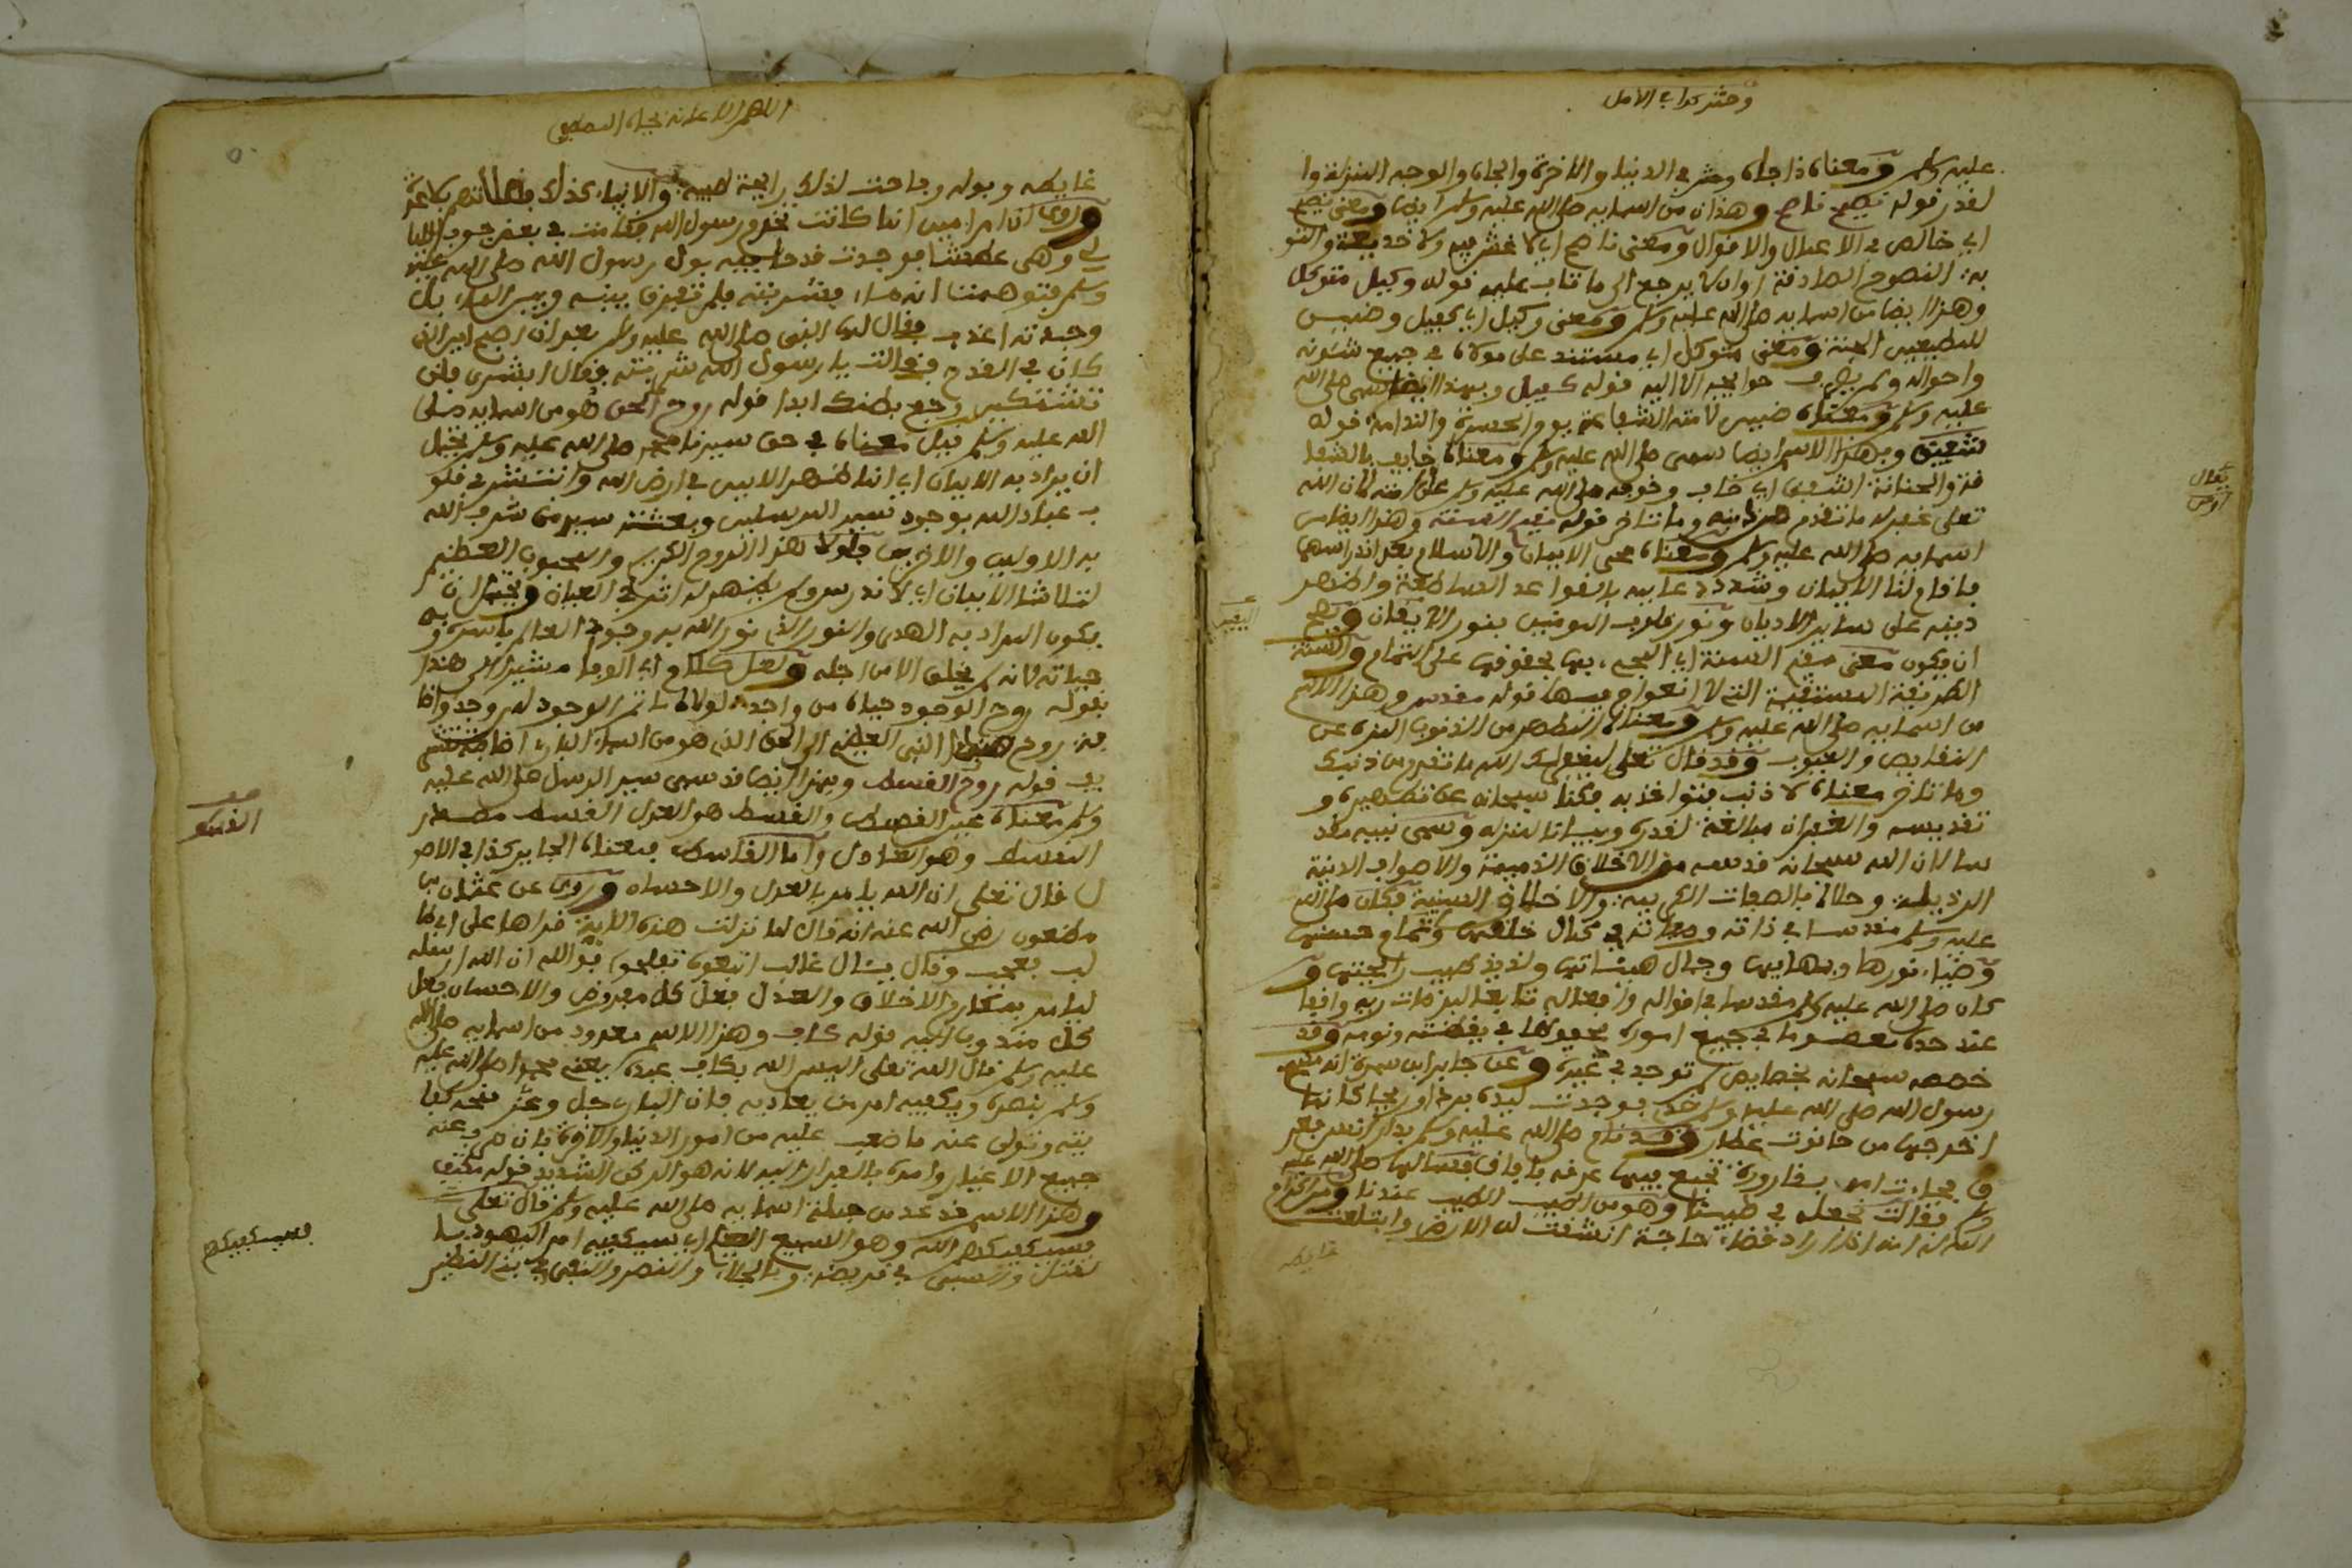 وحشر كذا في الأمل
عليه وسلم ومعناه ذا جاه وشرف في الدنيا والاخرة والجاه والوجه المنزلة وا
لقدر قوله نصيح ناصح وهذان من اسمايه صلى الله عليه وسلم ايضا ومعنى نصيح
اي خالص في الاعمال والاقوال ومعنى ناصح اي لا غش فيه ولا خديعة والتو
بة النصوح الصادقة او ان لا يرجع الى ما تاب عليه قوله وكيل متوكل
وهذا ايضا من اسمايه صلى الله عليه وسلم ومعنى وكيل اي كفيل وضمين
للمطيعين الجنة ومعنى متوكل اي مستند على مولاه في جميع شئونه
واحواله ولم يصرف حوايجه الا اليه قوله كفيل وبهذا ايضا سمى صلى الله
عليه وسلم ومعناه ضمين لامته الشفاعة يوم الحسرة والندامة قوله
شفيق وبهذا الاسم ايضا سمى صلى الله عليه وسلم ومعناه خايف بالشفا
فة والحنانة الشفيق اي خاف وخوفه صلى الله عليه وسلم على امته لان الله
تعلى غفر له ما تقدم من ذنبه وما تاخر قوله مقيم السنة وهذا ايضا من
اسمايه صلى الله عليه وسلم ومعناه محي الايمان والاسلام بعد اندراسهما
فاقام لنا الايمان وشدد دعايمه بالقواعد الساطعة واظهر
دينه على ساير الاديان ونور قلوب المومنين بنور الايقان ويصح
ان يكون معنى مقيم السنة اي المجيء بها بحقوقها على التمام والسنة
الطريقة المستقيمة التي لا اعوجاج فيها قوله مقدس وهذا الاسم
من اسمايه صلى الله عليه وسلم ومعناه المطهر من الذنوب المنزه عن
النقايص والعيوب وقد قال تعلى ليغفر لك الله ما تقدم من ذنبك
وما تاخر معناه لا ذنب فتواخذ به فكنا سبحانه عن تطهيره و
تقديسه والغفران مبالغة لقدره وبيانا لمنزله وسمى نبيه مقد
سا لان الله سبحانه قدسه من الاخلاق الذميمة والاوصاف الدنية
الرذيلة وحلاه بالصفات الكريمة والاخلاق السنية فكان صلى الله
عليه وسلم مقدسا في ذاته وصفاته في كمال خلقها وتمام حسنها
وضياء نورها وبهايها وجمال هيئاتها ولذيذ طيب رايحتها و
كان صلى الله عليه وسلم مقدسا في اقواله وافعاله تابعا لمرضات ربه واقفا
عند حده معصوما في جميع اموره محفوظا في يقظته ونومه وقد
خصصه سبحانه بخصايص لم توجد في غيره وعن جابر ابن سمرة انه مسح
رسول الله صلى الله عليه وسلم خده فوجدت ليده بردا وريحا كانما
اخرجها من جانوت عطار وقد نام صلى الله عليه وسلم بدار انس فعر
ق فجاءت امه بقارورة تجمع فيها عرقه فافاق فسالها صلى الله عليه
وسلم فقالت نجعله في طيبنا وهو من اطيب الطيب عندنا ومن اكرام
الله له انه اذا اراد قضاء حاجة انشقت له الارض وابتلعت
غايطه
يقال
الیقین
غايطه وبوله وفاحت لذلك رايحة طيبة والانبياء كذلك
وروى ان ام ايمن انها كانت تخدم رسول الله فقامت في بعض جوف الليا
لي وهي عطشا فوجدت قدحا فيه بول رسول الله صلى الله عليه
وسلم فتوهمت انه ماء فشربته فلم تفرق بينه وبين الماء بل
وجدته اعذب فقال لها النبي صلى الله عليه وسلم بعد ان اصبح اين الذي
كان في القدح فقالت يا رسول الله شربته فقال ابشري فلن
تشتكين وجع بطنك ابدا قوله روح الحق هو من اسمايه صلى
الله عليه وسلم قيل معناه في حق سيدنا محمد صلى الله عليه وسلم يحتمل
ان يراد به الايمان اي انما ظهر الايمان في ارض الله وانتشر في قلو
ب عباد الله بوجود سيد المرسلين وبعثة سيد من شرف الله
به الاولين والاخرين فلولا هذا الروح الكريم والمحبوب العظيم
لتلاشا الايمان اي لاندرس ولم يظهر له اثر في العيان ويحتمل ان
يكون المراد به الهدى والنور الذي نور الله به وجود العالم باسره وبه
حياته لانه لم يخلق الا من اجله ولعل كلام ابي الوفا مشيرا الى هذا
بقوله روح الوجود حياة من واجد لولاه ما تم الوجود لمن وجد واضا
فة روح هذا النبي العظيم الى الحق الذي هو من اسماء البارئ اضافة تشر
يف قوله روح القسط وبهذا ايضا قد سمى سيد الرسل صلى الله عليه
وسلم معناه عين القسط والقسط هو العدل القسط مصدر
المقسط وهو العادل واما القاسط فمعناه الجاير كذا في الاص
ل قال تعلى ان الله يامر بالعدل والاحسان وروى عن عثمان بن
مظعون رضي الله عنه انه قال لما نزلت هذه الاية قراها على ابي طا
لب فعجب وقال يئال غالب اتبعوه تفلحوا فوالله ان الله ارسله
ليامر بمكارم الاخلاق والعدل فعل كل مفروض والاحسان فعل
كل مندوب اليه قوله كاف وهذا الاسم معدود من اسمايه صلى الله
عليه وسلم قال الله تعلى اليس الله بكاف عبده يعني محمدا صلى الله عليه
وسلم ينصره ويكفيه امر من يعاديه فان البارئ جل وعز منحه كفا
يته وتولى عنه ما صعب عليه من امور الدنيا والاخرة
جميع الاغيار وامره بالفرار اليه لانه هو الركن الشديد قوله مكتف
وهذا الاسم قد عد من جملة اسمايه صلى الله عليه وسلم قال تعلى
فسيكفيكهم الله وهو السميع العليم اي سيكفيه امر اليهود با
لقتل والسبي في قريضة والجلاء والنصر والنفي في بني النظير
فسيكفيكهم